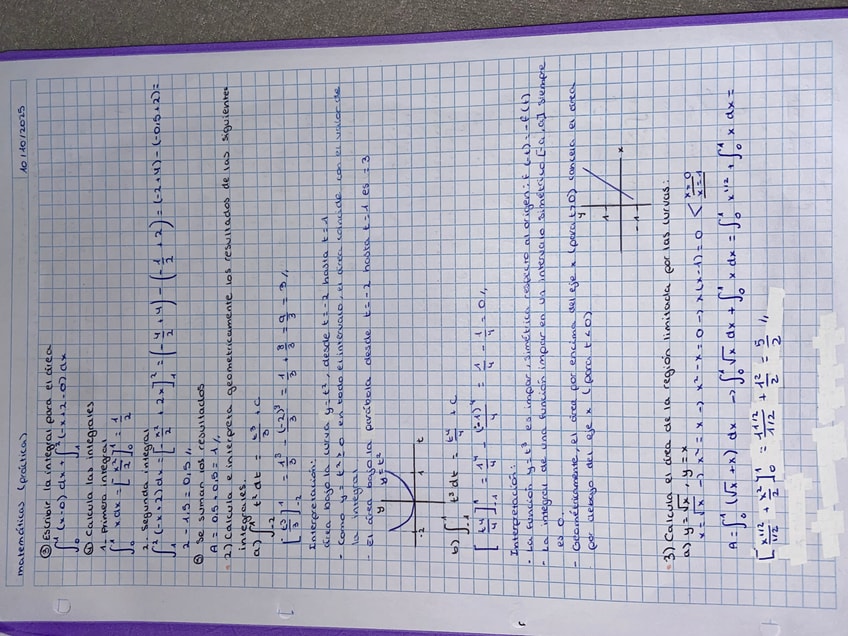 matemáticas (prática) 10/10/2025
③ Escribir la integral para el área
∫₀¹ (x-0) dx + ∫₁² (-x+2-0) dx
④ Calcula las integrales
1. Primera integral
∫₀¹ x dx = [x²/2]₀¹ = 1/2
2. Segunda integral
∫₁² (-x+2) dx = [-x²/2 + 2x]₁² = (-4/2 + 4) - (-1/2 + 2) = (-2+4) - (-0,5+2) =
2 - 1,5 = 0,5 //
⑤ Se suman los resultados
A = 0,5 + 0,5 = 1 //
2) Calcula e interpreta geométricamente los resultados de las siguientes
integrales.
a) ∫₋₂¹ t² dt = t³/3 + C
[t³/3]₋₂¹ = 1³/3 - (-2)³/3 = 1/3 + 8/3 = 9/3 = 3 //
Interpretación:
área bajo la curva y = t², desde t = -2 hasta t = 1
- Como y = t² ≥ 0 en todo el intervalo, el área coincide con el valor de
la integral
- El área bajo la parábola desde t = -2 hasta t = 1 es = 3
y y = t²
-2 1 t
b) ∫₋₁¹ t³ dt = t⁴/4 + C
[t⁴/4]₋₁¹ = 1⁴/4 - (-1)⁴/4 = 1/4 - 1/4 = 0 //
Interpretación:
- La función y = t³ es impar, simétrica respecto al origen: f(-t) = -f(t)
- La integral de una función impar en un intervalo simétrico [-a, a] siempre
es 0.
- Geométricamente, el área por encima del eje x (para t>0) cancela el área
por debajo del eje x (para t<0)
y
1
x
-1
3) Calcula el área de la región limitada por las curvas:
a) y = √x, y = x
x = √x → x² = x → x² - x = 0 → x(x-1) = 0 < x=0 x=1
A = ∫₀¹ (√x + x) dx → ∫₀¹ √x dx + ∫₀¹ x dx = ∫₀¹ x^1/2 + ∫₀¹ x dx =
[x^1/2 / 1/2 + x²/2]₀¹ = 1^1/2 / 1/2 + 1²/2 = 5/2 //